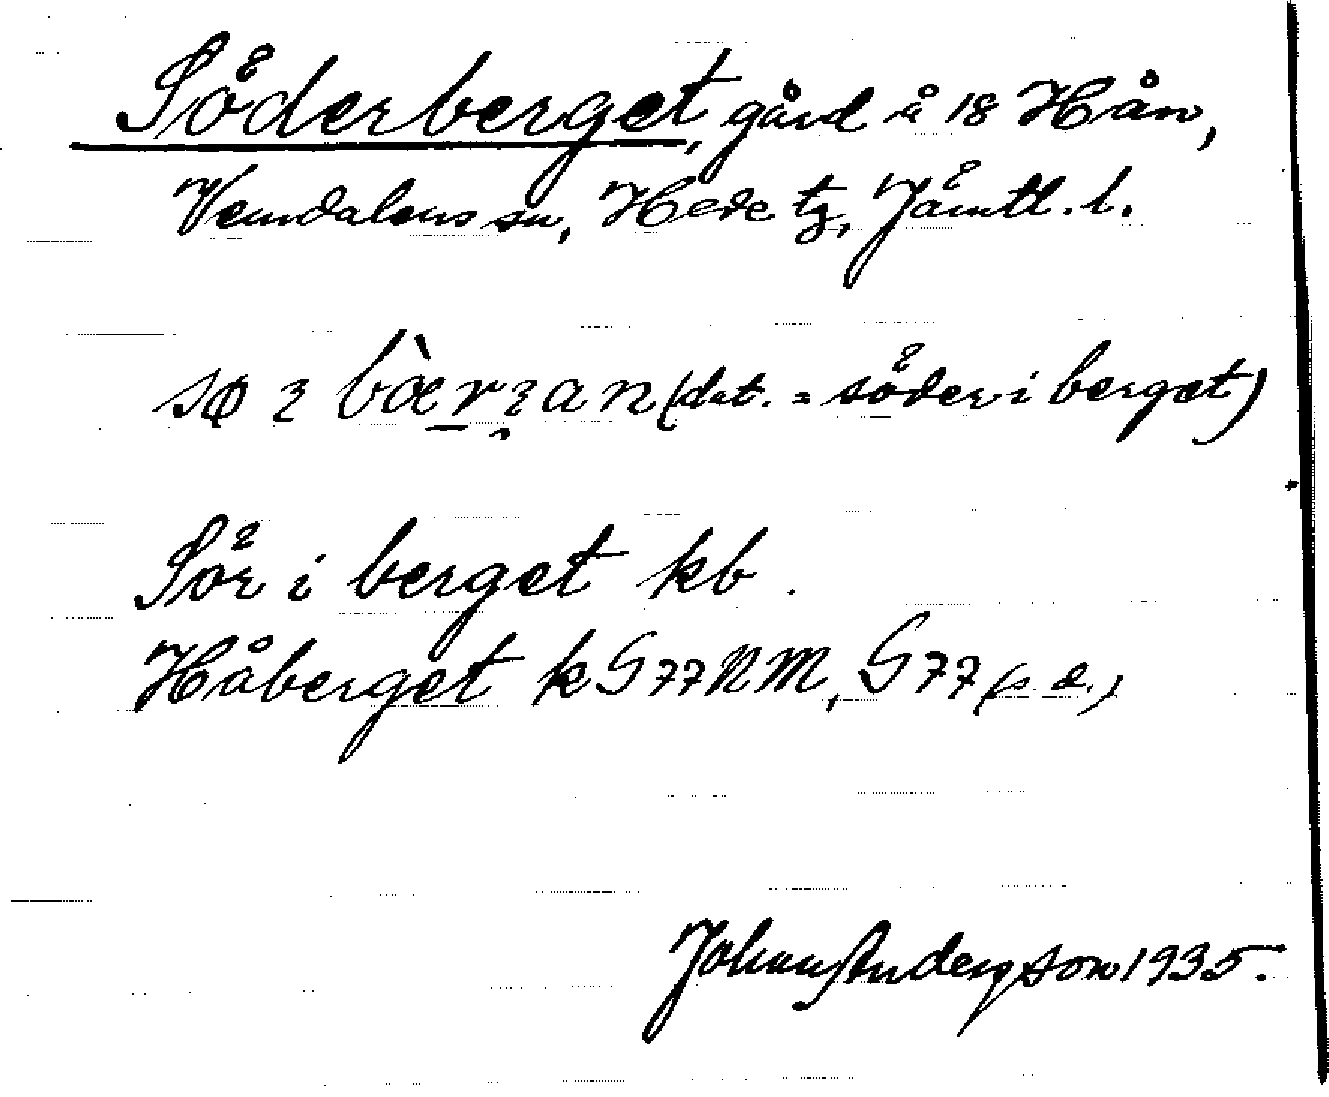 Söderberget, gård å 18 Hån,
Vemdalens sn, Hede tg, Jämtl. l.
(dat. = söder i berget)
Sör i berget kb.
Håberget k G77NM, G77 (s. e.)
Johan Anderson 1935.